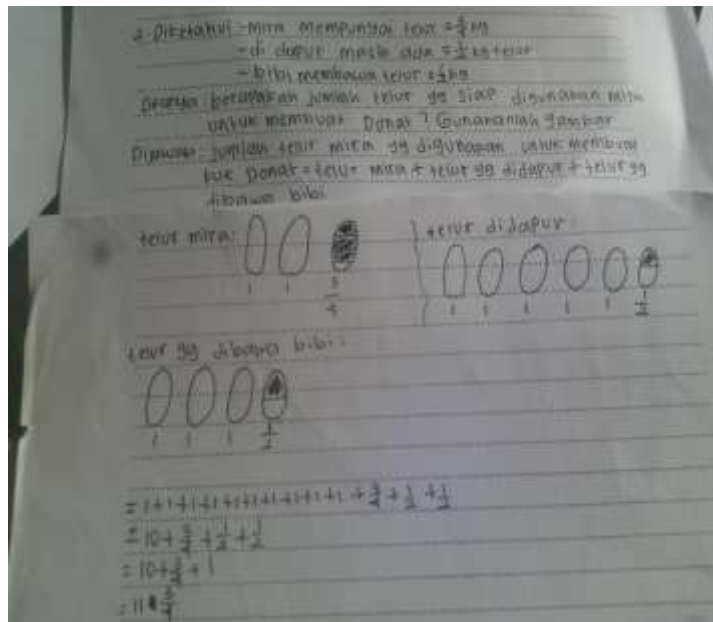 2. Diketahui : - mira mempunyai telur = 3/4 kg
- di dapur masih ada = 1/2 kg telur
- bibi membawa telur = 1/2 kg
Ditanya berapakah jumlah telur yg siap digunakan mira
untuk membuat Donat ? Gunakanlah gambar
Dijawab : jumlah telur mira yg digunakan untuk membuat
kue Donat = telur mira + telur yg didapur + telur yg
dibawa bibi
telur mira:
1 1 3/4
telur didapur :
1 1 1 1 1 1/2
telur yg dibawa bibi :
1 1 1 1/2
= 1+1+1+1+1+1+1+1+1+1 + 3/4 + 1/2 + 1/2
= 10 + 3/4 + 1/2 + 1/2
= 10 + 3/4 + 1
= 11 3/4